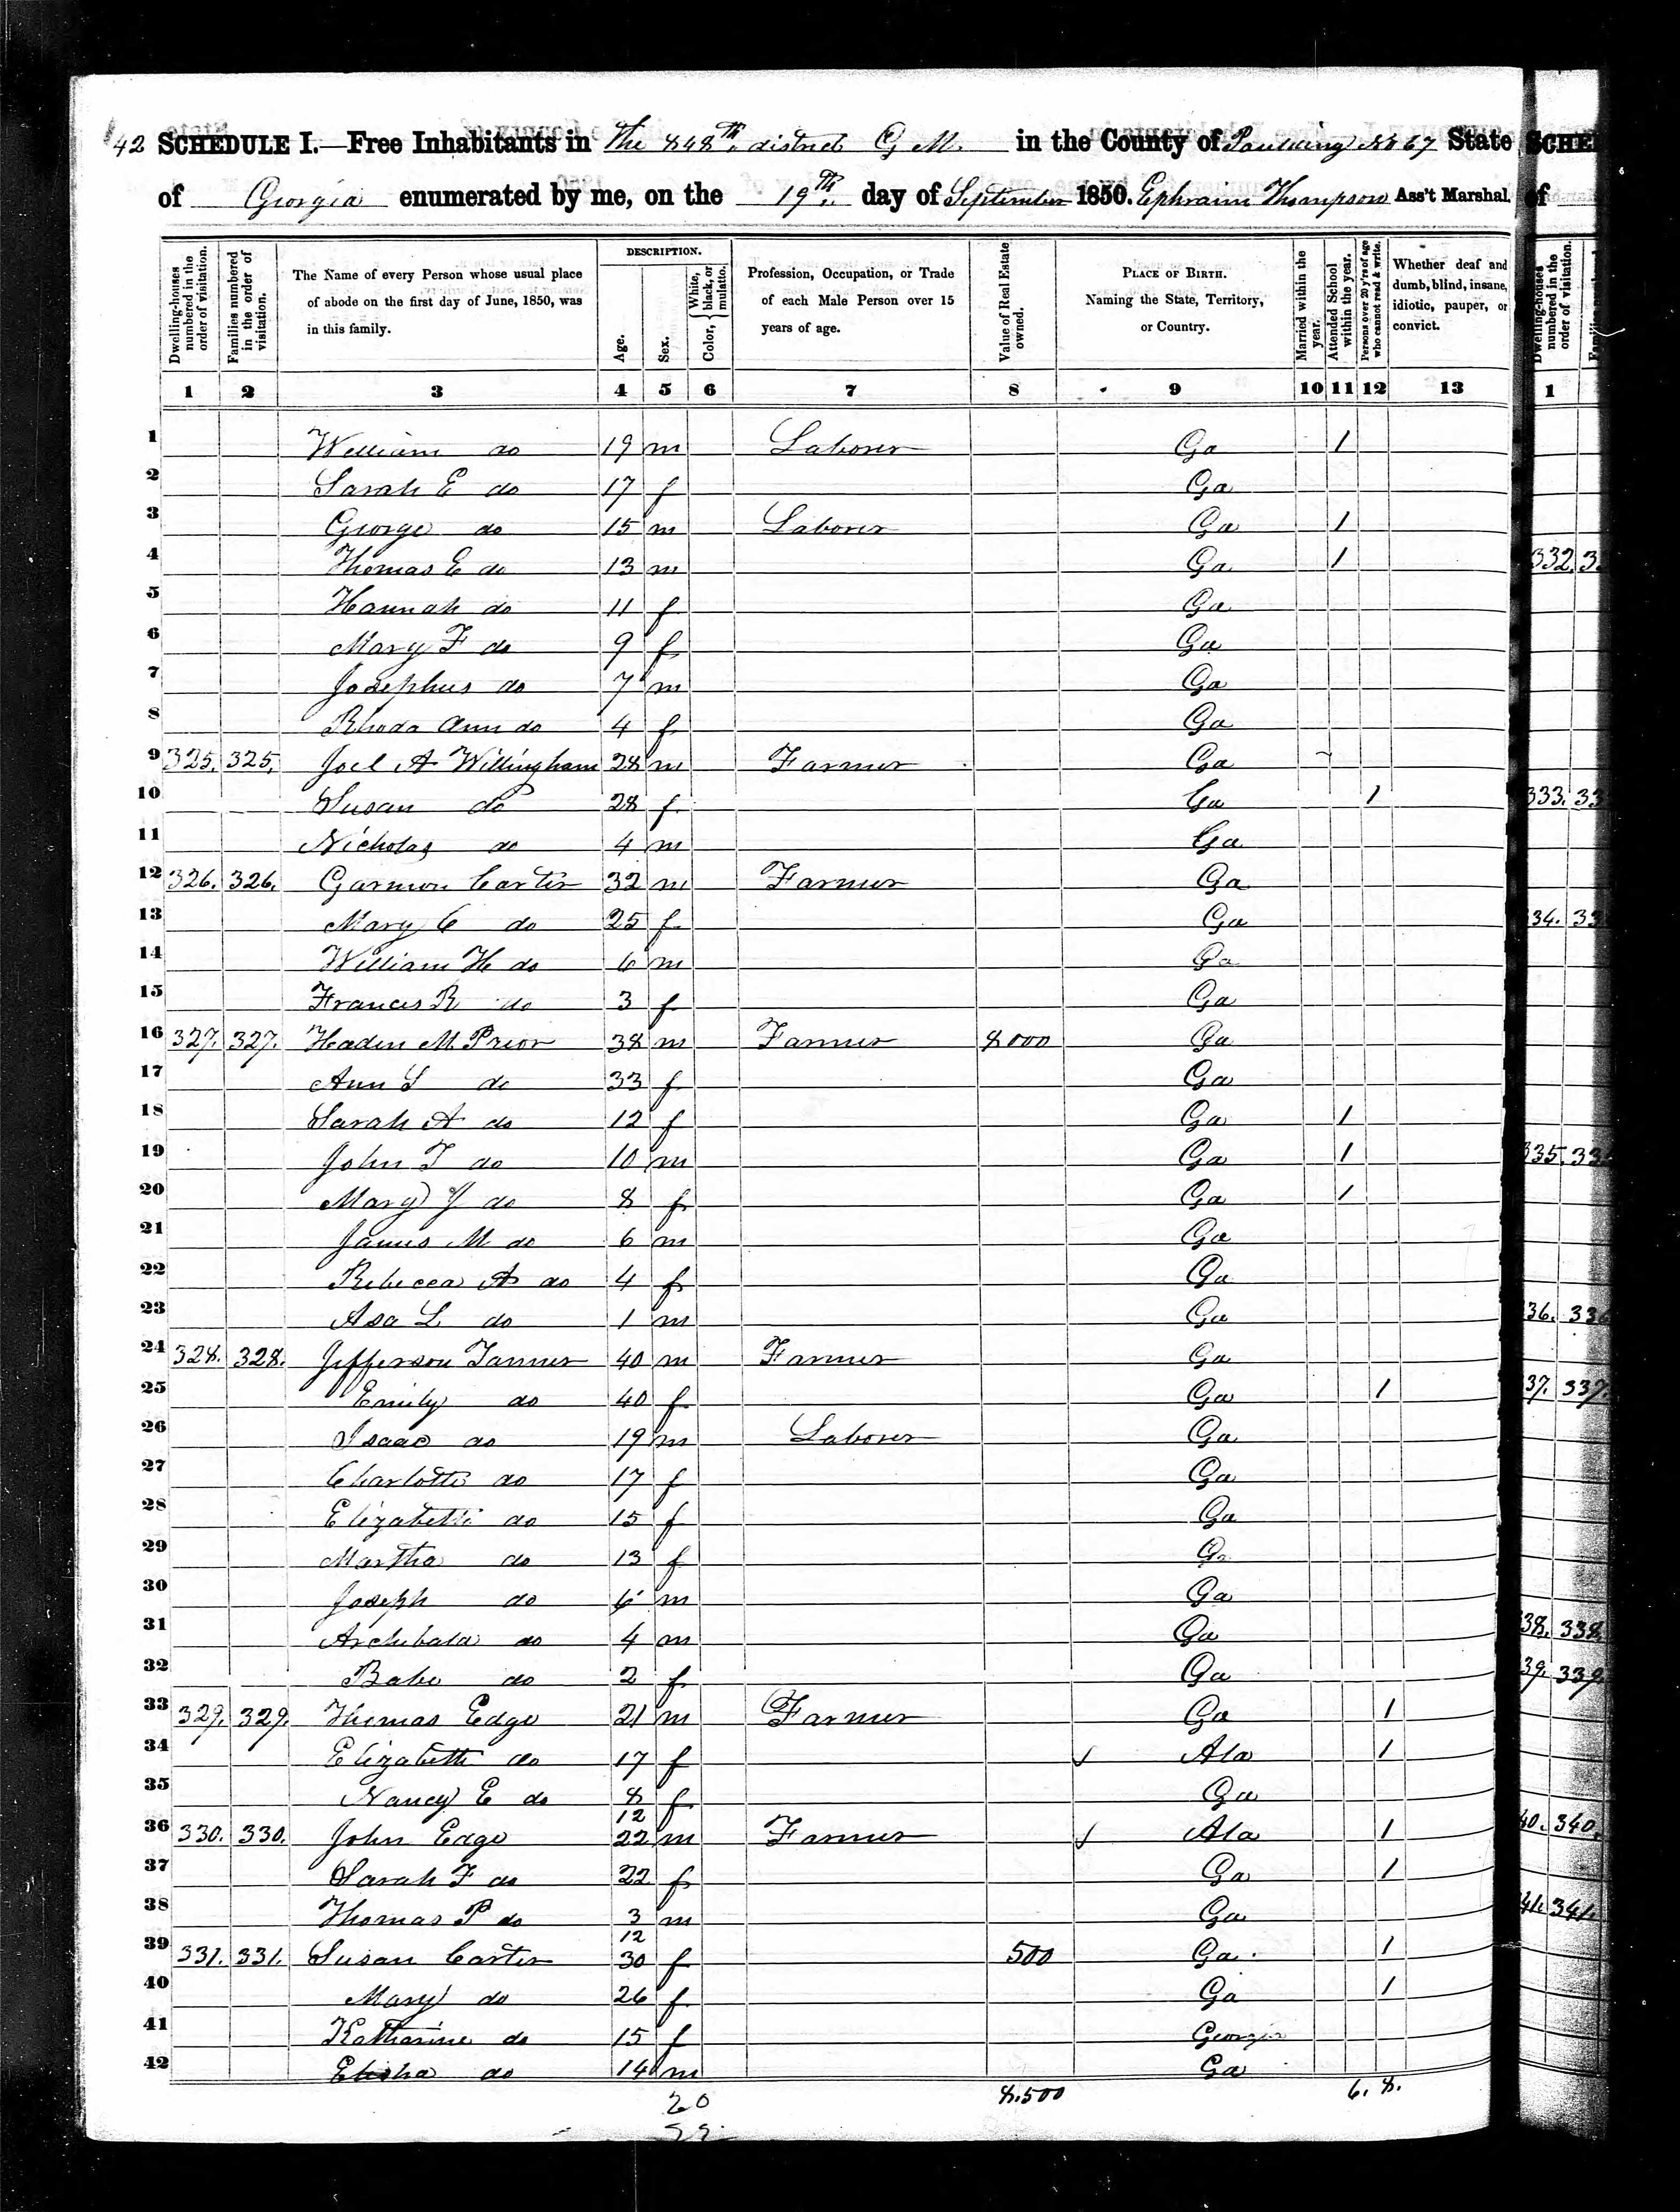 42 SCHEDULE I.—Free Inhabitants in The 848th district G M. in the County of Paulding No 67 State
of Georgia enumerated by me, on the 19th day of September 1850. Ephraim Thompson Ass't Marshal.
Dwelling-houses numbered in the order of visitation.
Families numbered in the order of visitation.
The Name of every Person whose usual place of abode on the first day of June, 1850, was in this family.
DESCRIPTION.
Age.
Sex.
Color, { White, black, or mulatto.
Profession, Occupation, or Trade of each Male Person over 15 years of age.
Value of Real Estate owned.
PLACE OF BIRTH. Naming the State, Territory, or Country.
Married within the year.
Attended School within the year.
Persons over 20 y'rs of age who cannot read & write.
Whether deaf and dumb, blind, insane, idiotic, pauper, or convict.
1 2 3 4 5 6 7 8 9 10 11 12 13
1 William do 19 m Laborer Ga 1
2 Sarah E do 17 f Ga
3 George do 15 m Laborer Ga 1
4 Thomas E do 13 m Ga 1
5 Hannah do 11 f Ga
6 Mary F do 9 f Ga
7 Josephus do 7 m Ga
8 Rhoda Ann do 4 f Ga
9 325. 325. Joel A Willingham 28 m Farmer Ga
10 Susan do 28 f Ga 1
11 Nicholas do 4 m Ga
12 326. 326. Garmon Carter 32 m Farmer Ga
13 Mary C do 25 f Ga
14 William H do 6 m Ga
15 Francis R do 3 f Ga
16 327. 327. Haden M Prior 38 m Farmer 8000 Ga
17 Ann L do 33 f Ga
18 Sarah A do 12 f Ga 1
19 John T do 10 m Ga 1
20 Mary J do 8 f Ga 1
21 James M do 6 m Ga
22 Rebecca A do 4 f Ga
23 Asa L do 1 m Ga
24 328. 328. Jefferson Tanner 40 m Farmer Ga
25 Emily do 40 f Ga 1
26 Isaac do 19 m Laborer Ga
27 Charlotte do 17 f Ga
28 Elizabeth do 15 f Ga
29 Martha do 13 f Ga
30 Joseph do 6 m Ga
31 Archibald do 4 m Ga
32 Babe do 2 f Ga
33 329. 329. Thomas Edge 21 m Farmer Ga 1
34 Elizabeth do 17 f ✓ Ala 1
35 Nancy E do 8/12 f Ga
36 330. 330. John Edge 22 m Farmer ✓ Ala 1
37 Sarah F do 22 f Ga 1
38 Thomas P do 3/12 m Ga
39 331. 331. Susan Carter 30 f 500 Ga 1
40 Mary do 26 f Ga 1
41 Katharine do 15 f Georgia
42 Elisha do 14 m Ga
20 8.500 6. 8.
SCHE
of
Dwelling-houses numbered in the order of visitation.
1
332.
333. 33
34. 33
335. 33
36. 336
37. 337.
38. 338.
39. 339.
40. 340.
41. 341.